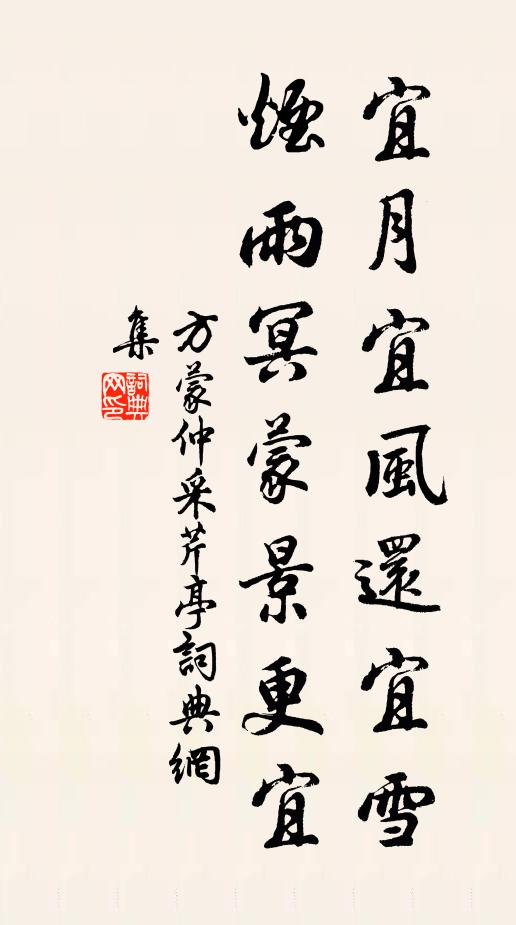 宜月宜風還宜雪
煙雨冥蒙景更宜
方蒙仲采芹亭詞典網
集
詞典
网印